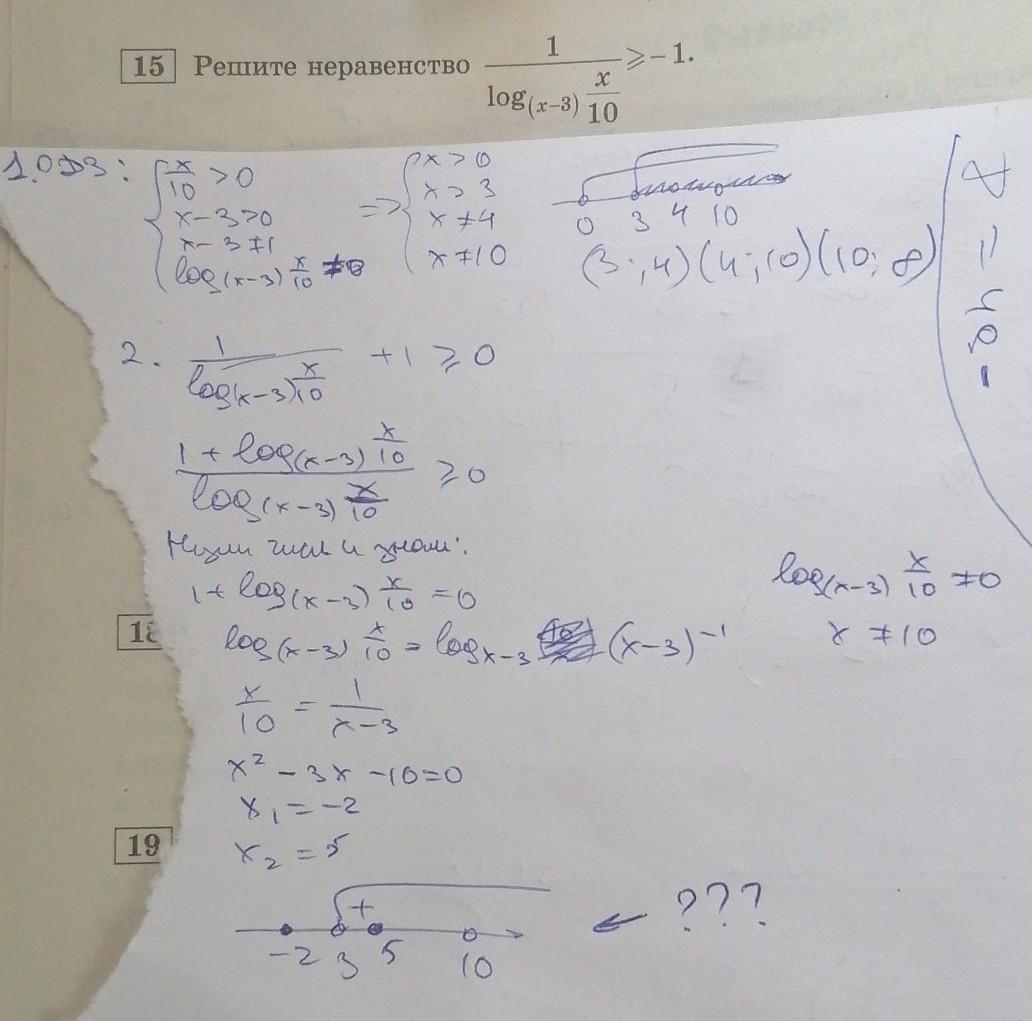 15 Решите неравенство 1/log(x−3) x/10 ⩾ −1.
1. ОДЗ: { x/10 > 0 => { x > 0
x − 3 > 0 x > 3
x − 3 ≠ 1 x ≠ 4
log(x−3) x/10 ≠ 0 x ≠ 10
0 3 4 10
(3; 4) (4; 10) (10; ∞)
2. 1/log(x−3) x/10 + 1 ⩾ 0
(1 + log(x−3) x/10)/(log(x−3) x/10) ⩾ 0
Нули числ и знам:
1 + log(x−3) x/10 = 0
log(x−3) x/10 = log x−3 (x−3)^−1
x/10 = 1/(x−3)
x² − 3x − 10 = 0
x₁ = −2
x₂ = 5
log(x−3) x/10 ≠ 0
x ≠ 10
+
−2 3 5 10
← ???
18
19